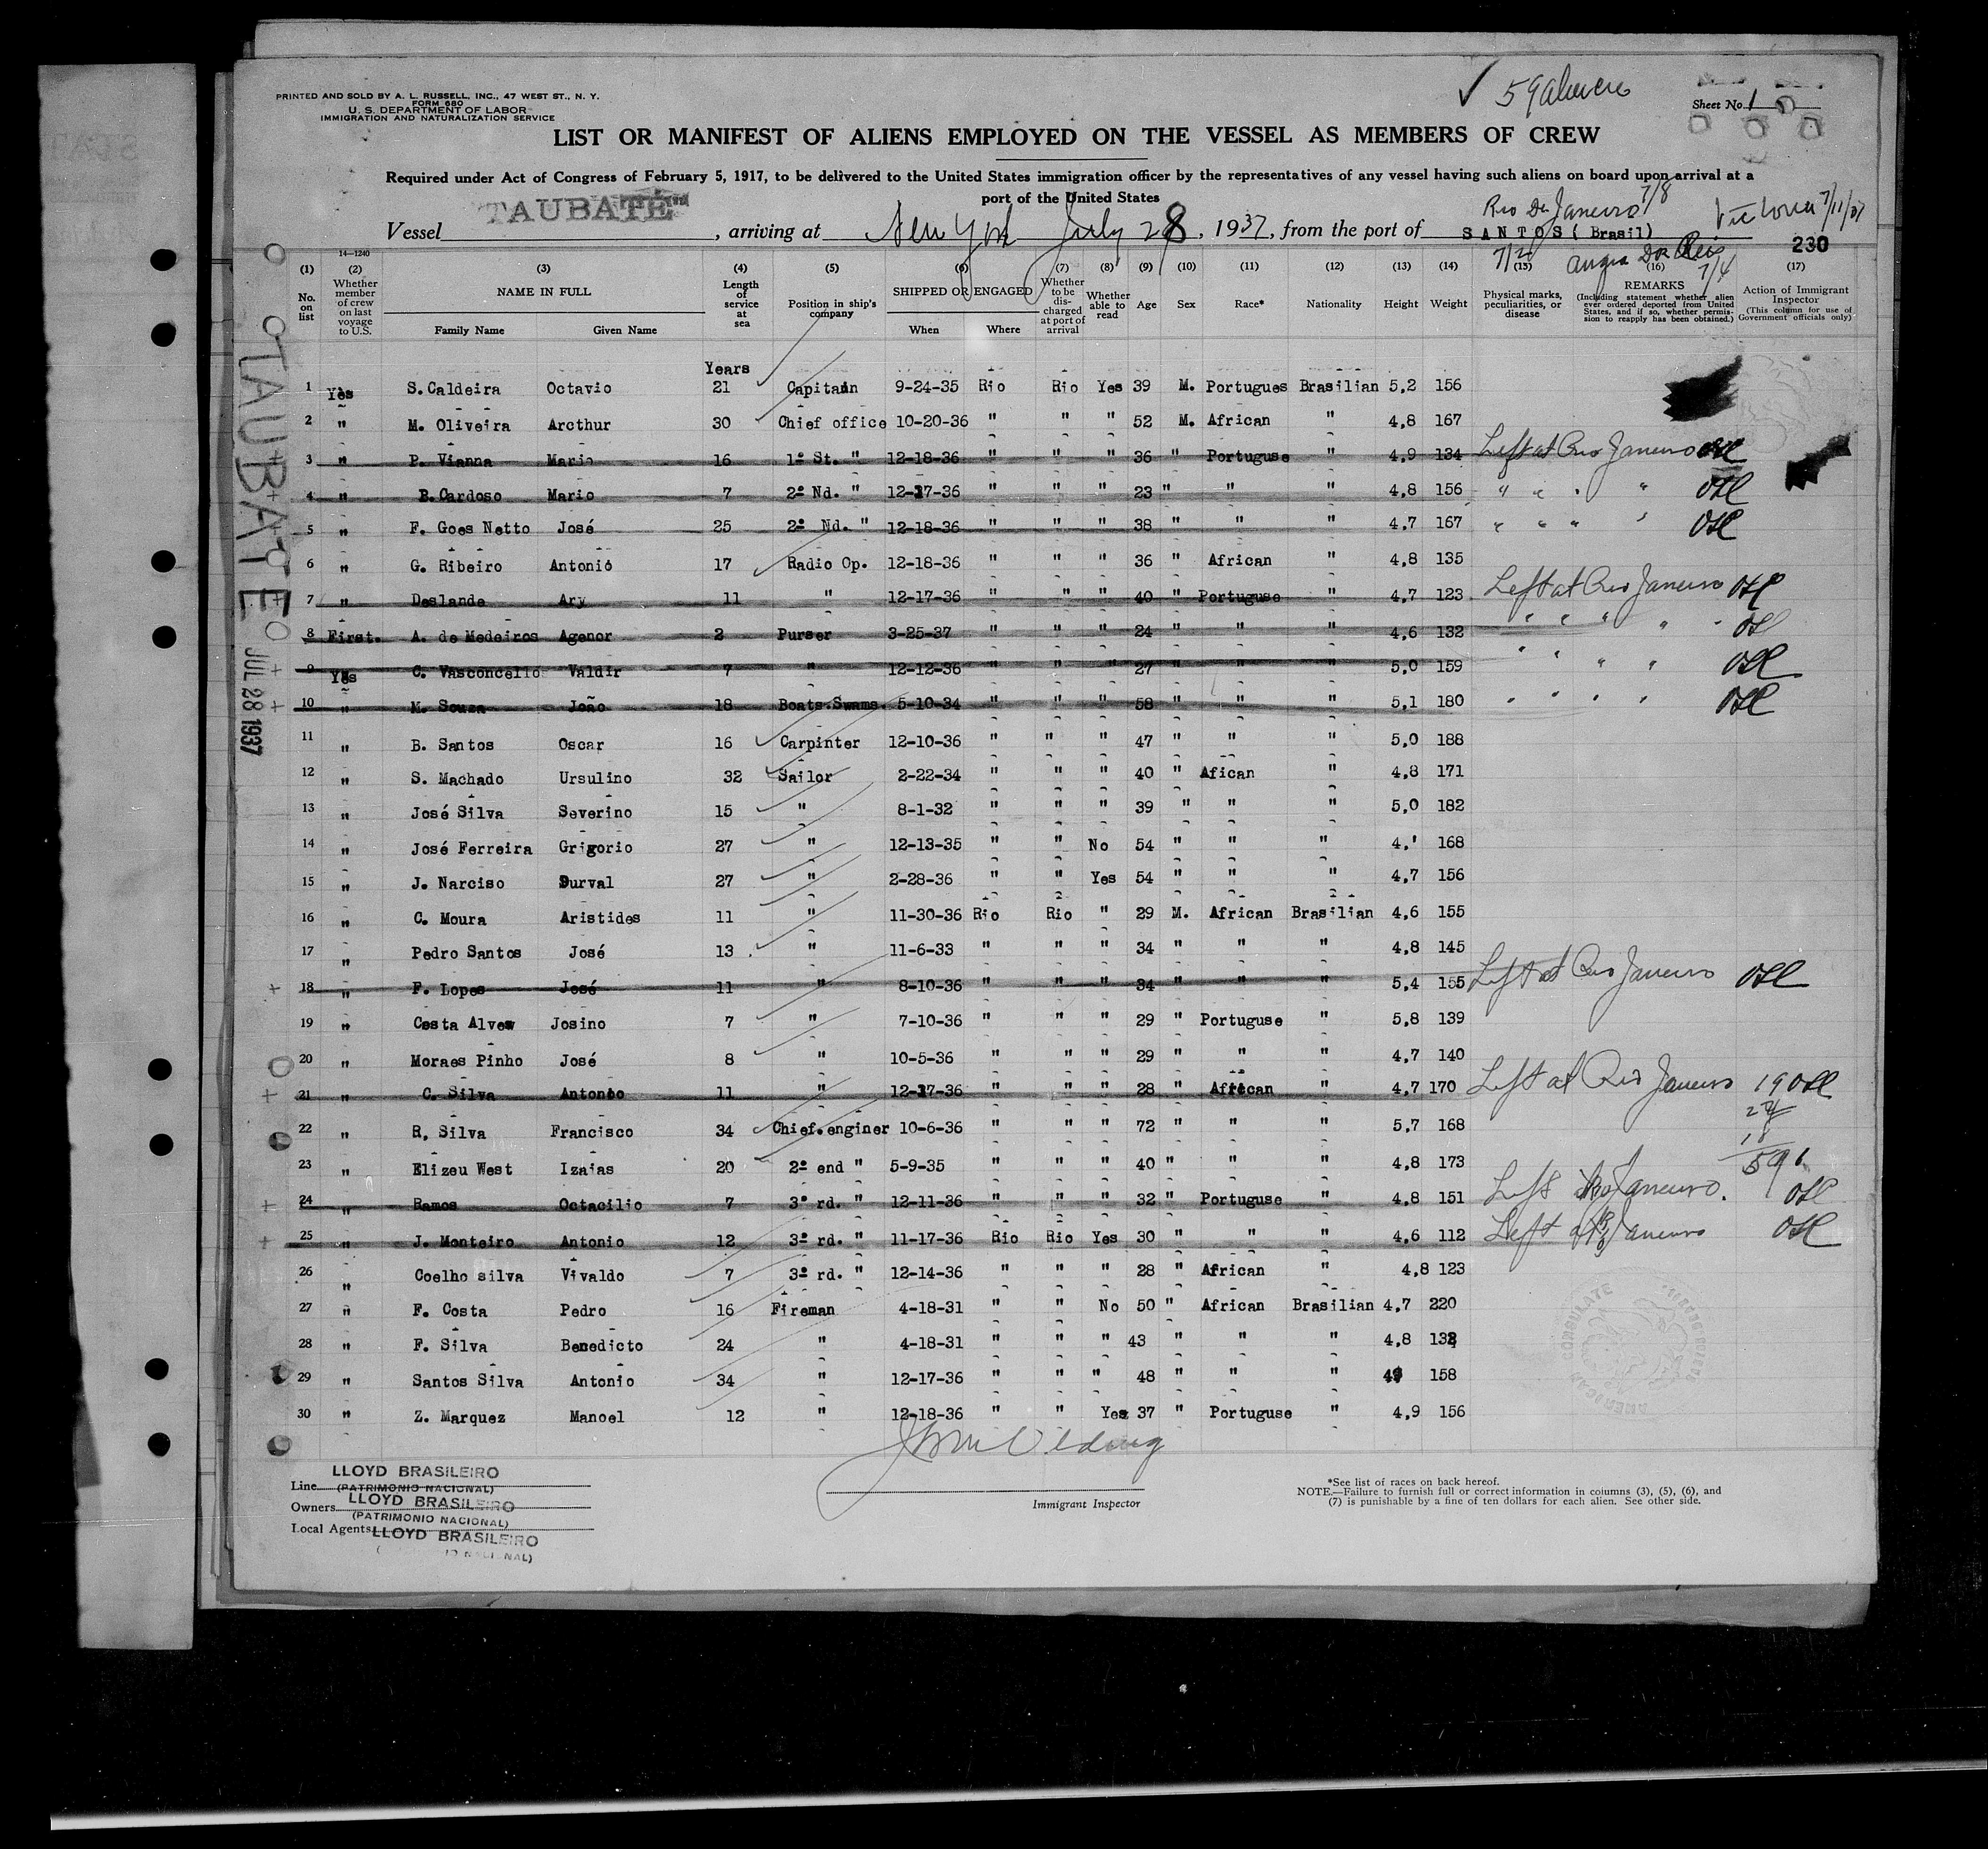 PRINTED AND SOLD BY A. L. RUSSELL, INC., 47 WEST ST., N. Y.
FORM 680
U. S. DEPARTMENT OF LABOR
IMMIGRATION AND NATURALIZATION SERVICE
Sheet No. 1
LIST OR MANIFEST OF ALIENS EMPLOYED ON THE VESSEL AS MEMBERS OF CREW
Required under Act of Congress of February 5, 1917, to be delivered to the United States immigration officer by the representatives of any vessel having such aliens on board upon arrival at a
port of the United States
Rio De Janeiro 7/8 Victoria 7/11/37
Vessel TAUBATÉ , arriving at New York July 28 , 1937, from the port of SANTOS ( Brasil)
7/2 Angra Dos Reis 7/4
230
14—1240
(1) (2) (3) (4) (5) (6) (7) (8) (9) (10) (11) (12) (13) (14) (15) (16) (17)
No. on list Whether member of crew on last voyage to U.S. NAME IN FULL Family Name Given Name Length of service at sea Position in ship's company SHIPPED OR ENGAGED When Where Whether to be discharged at port of arrival Whether able to read Age Sex Race* Nationality Height Weight Physical marks, peculiarities, or disease REMARKS (Including statement whether alien ever ordered deported from United States, and if so, whether permission to reapply has been obtained.) Action of Immigrant Inspector (This column for use of Government officials only)
Years
1 Yes S. Caldeira Octavio 21 Capitain 9-24-35 Rio Rio Yes 39 M. Portugues Brasilian 5,2 156
2 " M. Oliveira Arcthur 30 Chief office 10-20-36 " " " 52 M. African " 4,8 167
3 " P. Vianna Mario 16 1º St. " 12-18-36 " " " 36 " Portuguse " 4,9 134 Left at Rio Janeiro
4 " B. Cardoso Mario 7 2º Nd. " 12-17-36 " " " 23 " " " 4,8 156 " " " "
5 " F. Goes Netto José 25 2º Nd. " 12-18-36 " " " 38 " " " 4,7 167 " " " "
6 " G. Ribeiro Antonio 17 Radio Op. 12-18-36 " " " 36 " African " 4,8 135
7 " Deslande Ary 11 " 12-17-36 " " " 40 " Portuguse " 4,7 123 Left at Rio Janeiro
8 First. A. de Medeiros Agenor 2 Purser 3-25-37 " " " 24 " " " 4,6 132 " " " "
9 Yes C. Vasconcello Valdir 7 " 12-12-36 " " " 27 " " " 5,0 159 " " " "
10 " M. Souza João 18 Boats.Swams. 5-10-34 " " " 58 " " " 5,1 180 " " " "
11 " B. Santos Oscar 16 Carpinter 12-10-36 " " " 47 " " " 5,0 188
12 " S. Machado Ursulino 32 Sailor 2-22-34 " " " 40 " Afican " 4,8 171
13 " José Silva Severino 15 " 8-1-32 " " " 39 " " " 5,0 182
14 " José Ferreira Grigorio 27 " 12-13-35 " " No 54 " " " 4,' 168
15 " J. Narciso Durval 27 " 2-28-36 " " Yes 54 " " " 4,7 156
16 " C. Moura Aristides 11 " 11-30-36 Rio Rio " 29 M. African Brasilian 4,6 155
17 " Pedro Santos José 13 " 11-6-33 " " " 34 " " " 4,8 145
18 " F. Lopes José 11 " 8-10-36 " " " 34 " " " 5,4 155 Left at Rio Janeiro
19 " Costa Alves Josino 7 " 7-10-36 " " " 29 " Portuguse " 5,8 139
20 " Moraes Pinho José 8 " 10-5-36 " " " 29 " " " 4,7 140
21 " C. Silva Antonio 11 " 12-17-36 " " " 28 " African " 4,7 170 Left at Rio Janeiro 19
22 " R, Silva Francisco 34 Chief.enginer 10-6-36 " " " 72 " " " 5,7 168
23 " Elizeu West Izaias 20 2º end " 5-9-35 " " " 40 " " " 4,8 173 59
24 " Ramos Octacilio 7 3º rd. " 12-11-36 " " " 32 " Portuguse " 4,8 151 Left Rio Janeiro.
25 " J. Monteiro Antonio 12 3º rd. " 11-17-36 Rio Rio Yes 30 " " " 4,6 112 Left at Rio Janeiro
26 " Coelho silva Vivaldo 7 3º rd. " 12-14-36 " " " 28 " African " 4,8 123
27 " F. Costa Pedro 16 Fireman 4-18-31 " " No 50 " African Brasilian 4,7 220
28 " F. Silva Benedicto 24 " 4-18-31 " " " 43 " " " 4,8 132
29 " Santos Silva Antonio 34 " 12-17-36 " " " 48 " " " 158
30 " Z. Marquez Manoel 12 " 12-18-36 " " Yes 37 " Portuguse " 4,9 156
Line LLOYD BRASILEIRO
(PATRIMONIO NACIONAL)
Owners LLOYD BRASILEIRO
(PATRIMONIO NACIONAL)
Local Agents LLOYD BRASILEIRO
Immigrant Inspector
*See list of races on back hereof.
NOTE.—Failure to furnish full or correct information in columns (3), (5), (6), and
(7) is punishable by a fine of ten dollars for each alien. See other side.
TAUBATE
JUL 28 1937
AMERICAN CONSULATE